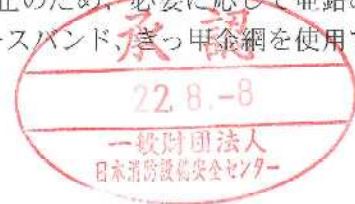 止のため、必要に応じて亜鉛
ースバンド、きっ甲金網を使用
承認
22.8.-8
一般財団法人
日本消防設備安全センター